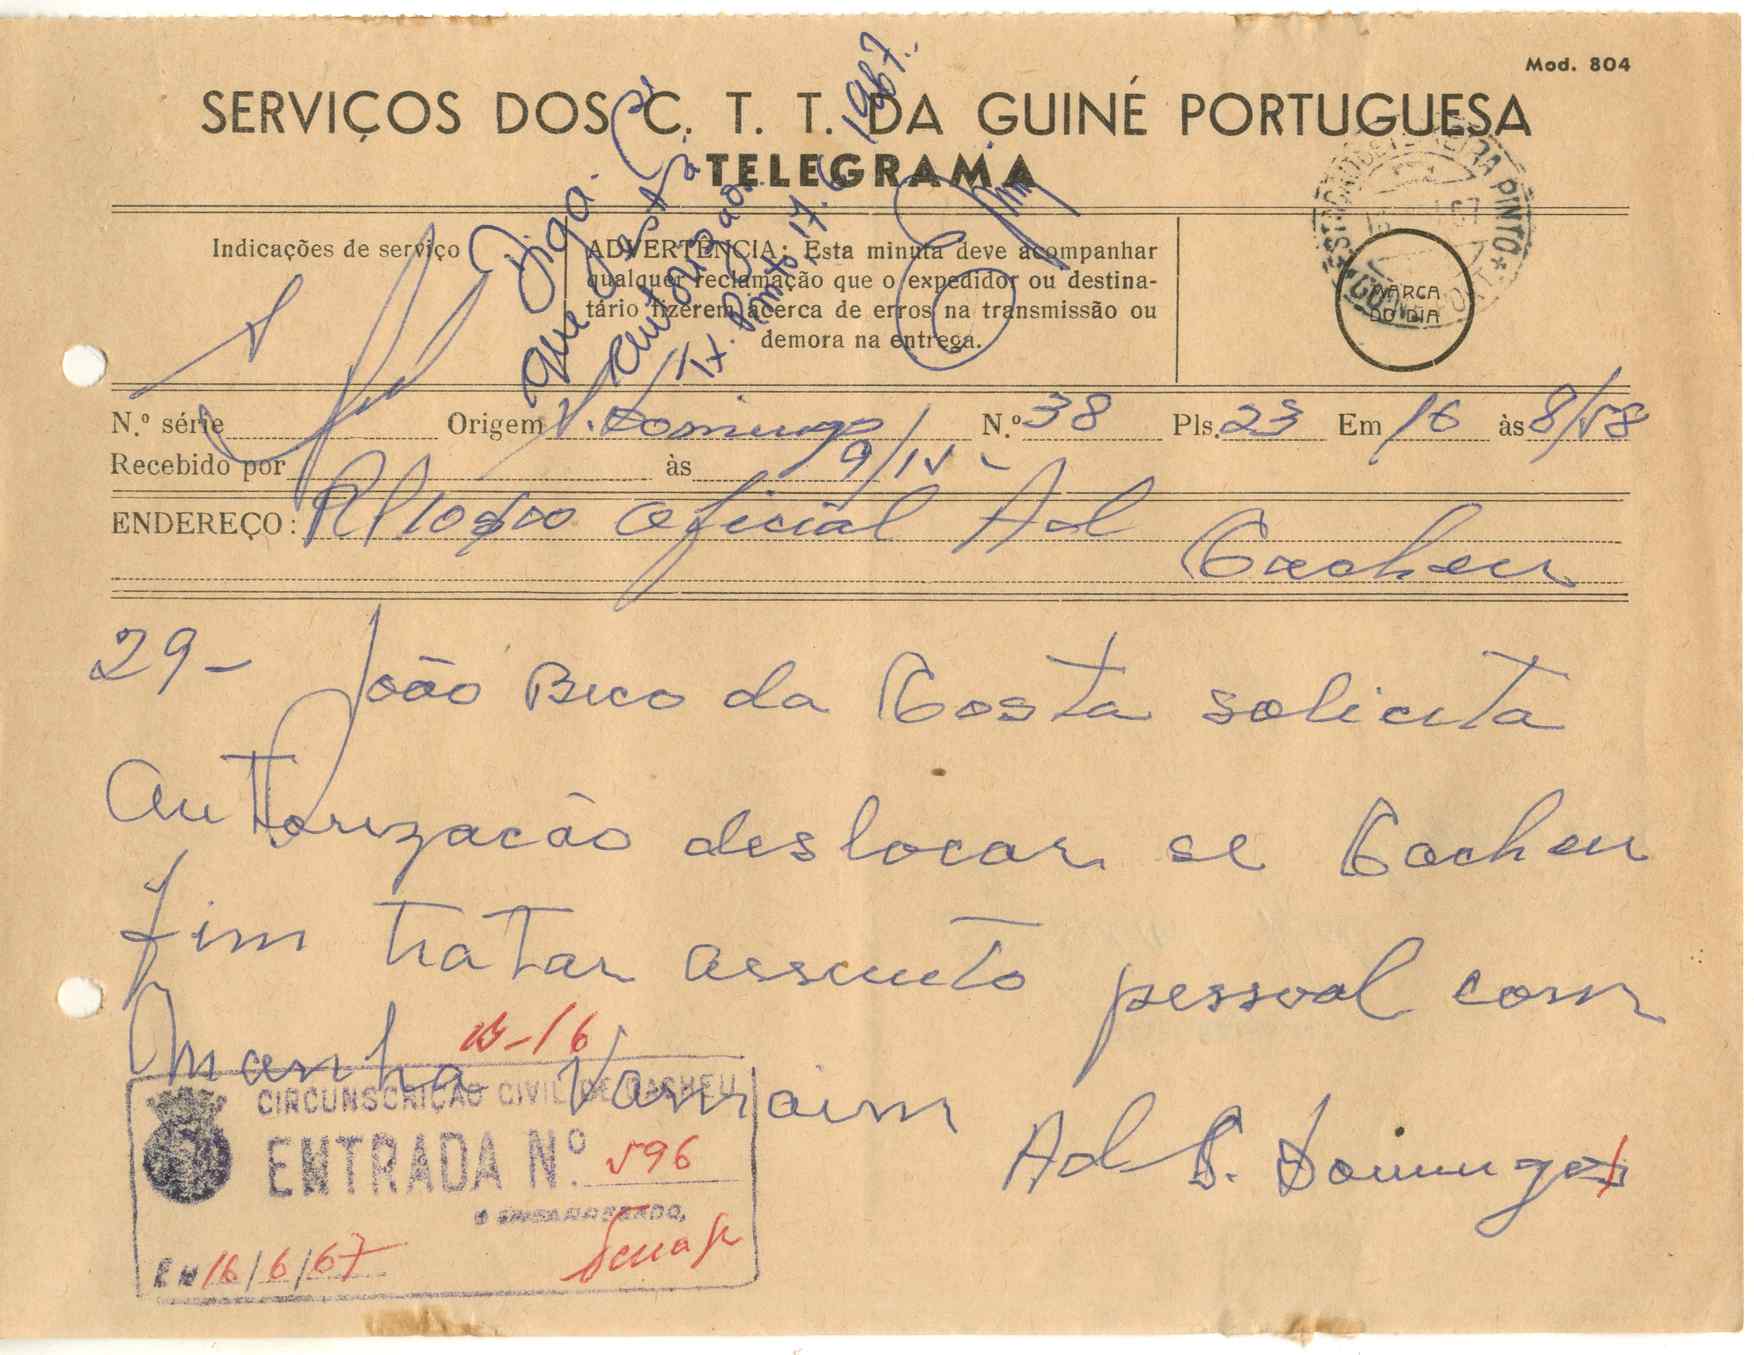 Mod. 804
SERVIÇOS DOS C. T. T. DA GUINÉ PORTUGUESA
TELEGRAMA
Diga.
que está
autorisado.
Tx. Pinto, 17.6.1967.
Indicações de serviço
ADVERTÊNCIA: Esta minuta deve acompanhar
qualquer reclamação que o expedidor ou destina-
tário fizerem acerca de erros na transmissão ou
demora na entrega.
TEIXEIRA PINTO
MARCA
DO DIA
N.º série Origem S. Domingo N.º 38 Pls. 23 Em 16 às 8/58
Recebido por às 9/15
ENDEREÇO: RP10$00 Oficial Ad
Cacheu
29- João Bico da Costa solicita
autorização deslocar se Cacheu
fim tratar assunto pessoal com
Manha Vamaim
Ad S. Domingos
B-16
CIRCUNSCRIÇÃO CIVIL DE CACHEU
ENTRADA N.º 596
O ENCARREGADO,
EM 16/6/67